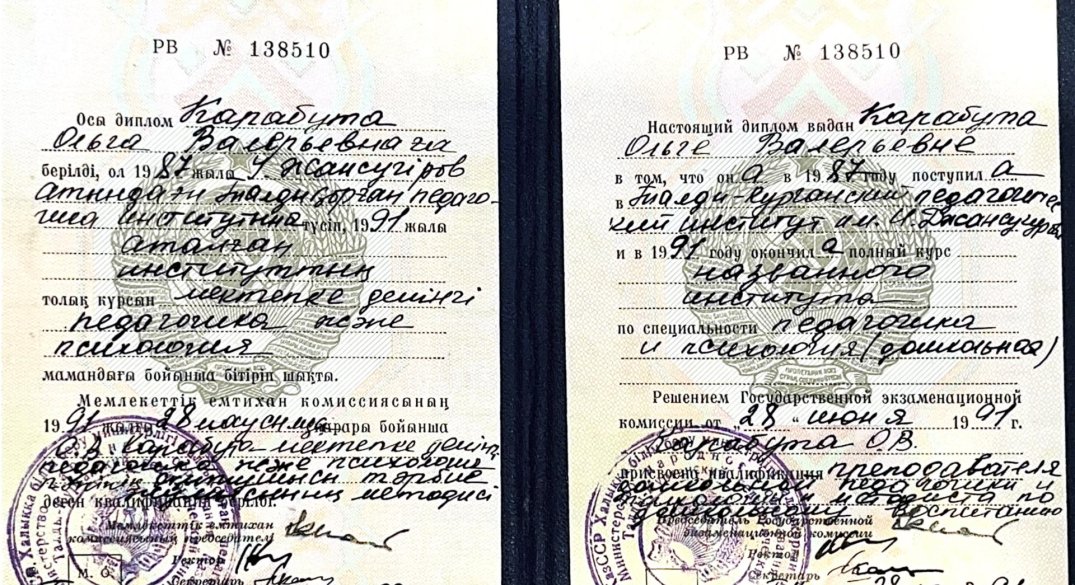 РВ № 138510
Осы диплом Карабута
Ольга Валерьевнаға
берілді, ол 1987 жылы І. Жансүгіров
атындағы Талдықорған педаго-
гика институтына түсіп, 1991 жылы
аталған
институттың
толық курсын мектепке дейінгі
педагогика және
психология
мамандығы бойынша бітіріп шықты.
Мемлекеттік емтихан комиссиясының
1991 жылғы 28 маусым қарары бойынша
О.В. Карабута мектепке дейінгі
педагогика және психология
тәрбие
методисі
деген квалификация берілді.
Мемлекеттік емтихан
комиссиясының председателі
Ректор
Секретарь
М. О.
РВ № 138510
Настоящий диплом выдан Карабута
Ольге Валерьевне
в том, что он а в 1987 году поступил а
в Талды-Курганский педагогичес
кий институт им. И. Джансугурова
и в 1991 году окончил а полный курс
названного
института
по специальности педагогика
и психология (дошкольная)
Решением Государственной экзаменационной
комиссии от „28“ июня 1991 г.
Карабута О.В.
присвоена квалификация преподавателя
дошкольной педагогики и
психологии и методиста по
дошкольному воспитанию
Председатель Государственной
экзаменационной комиссии
Ректор
Секретарь